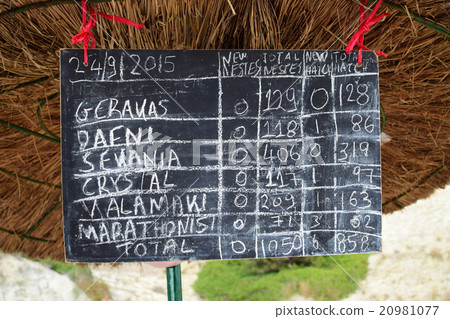 24/9/2015 NEW TOTAL NEW TOTAL
NESTES NESTES HATCH HATCH
GERAKAS 0 129 0 128
DAFNI 0 118 1 86
SEKANIA 0 406 0 319
CRYSTAL 0 117 1 97
KALAMAKI 0 209 1 163
MARATHONISI 0 71 3
TOTAL 0 1050 6 858
pixta.jp - 20981077